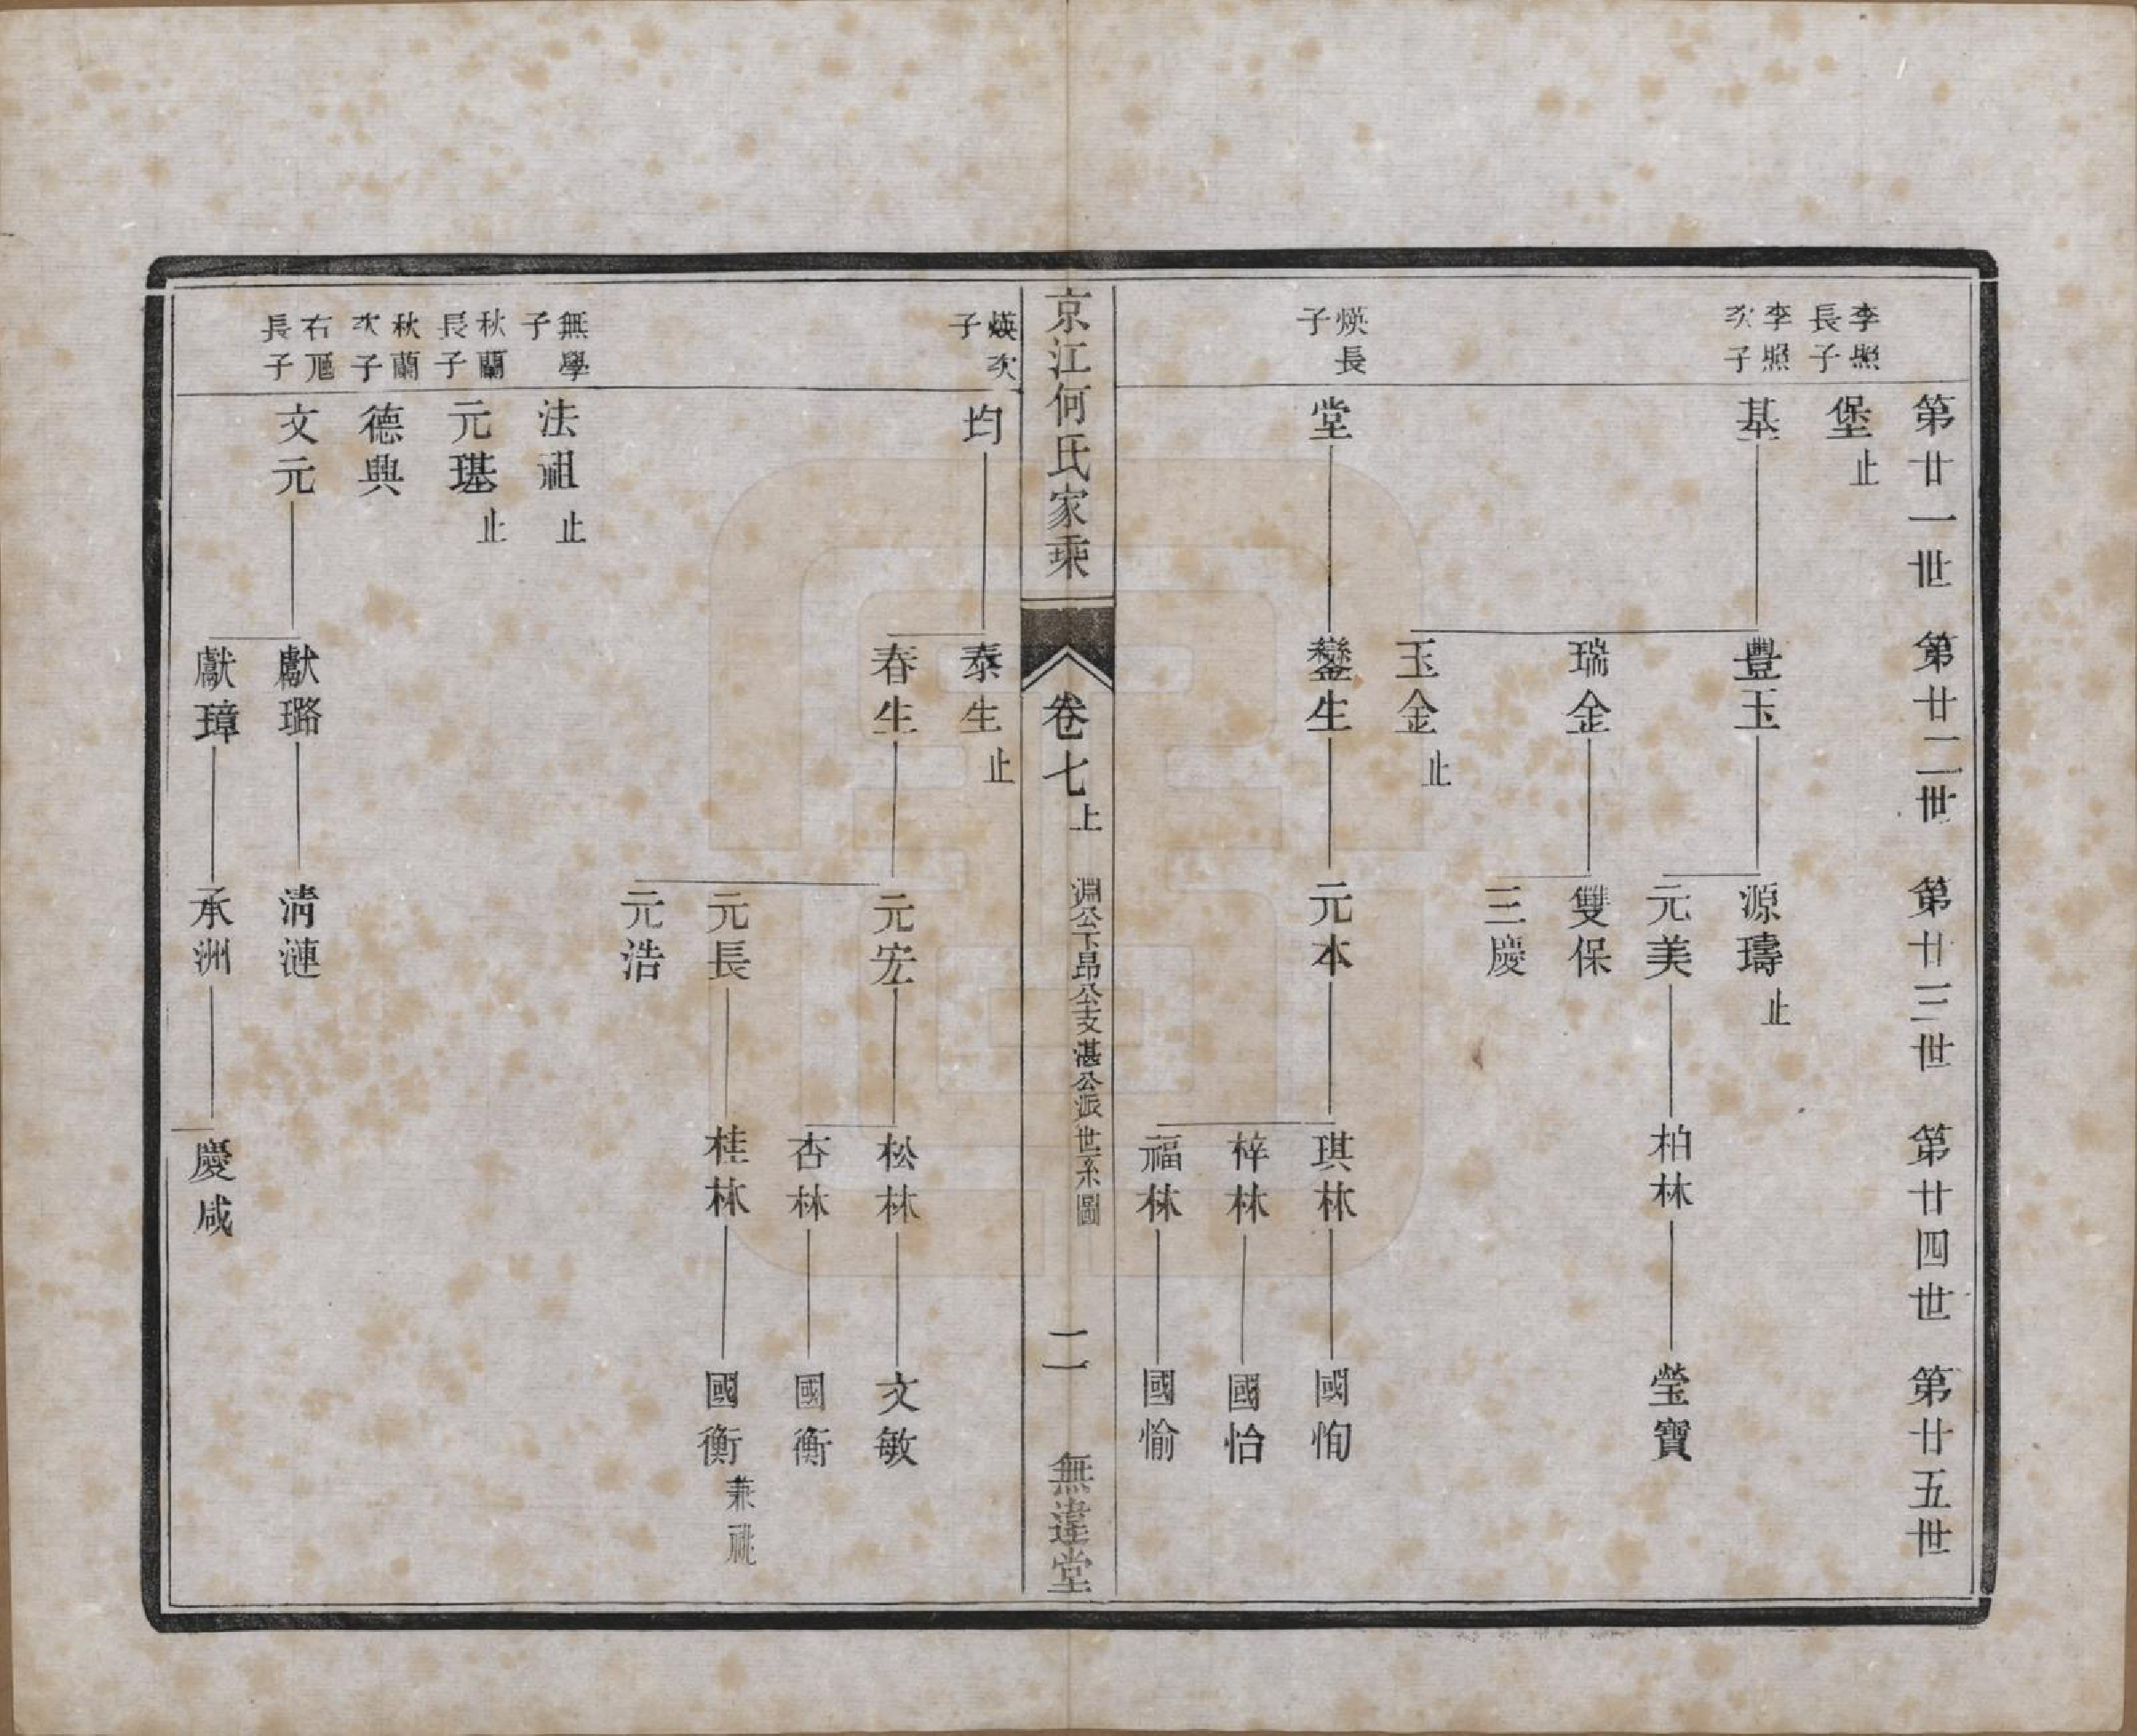 第廿一世　第廿二世　第廿三世　第廿四世　第廿五世
李照長子
堡止
李照次子
基
豐玉
源璹止
元美
柏林
瑩寶
瑞金
雙保
三慶
玉金止
煐長子
堂
鑾生
元本
琪林
國恂
梓林
國怡
福林
國愉
京江何氏家乘
卷七上
淵公下昂公支湛公派世系圖
二
無違堂
煐次子
均
泰生止
春生
元宏
松林
文敏
杏林
國衡
元長
桂林
國衡兼祧
元浩
無學子
法祖止
秋蘭長子
元璂止
秋蘭次子
德興
右長子
文元
獻璐
淸漣
獻璋
承洲
慶咸